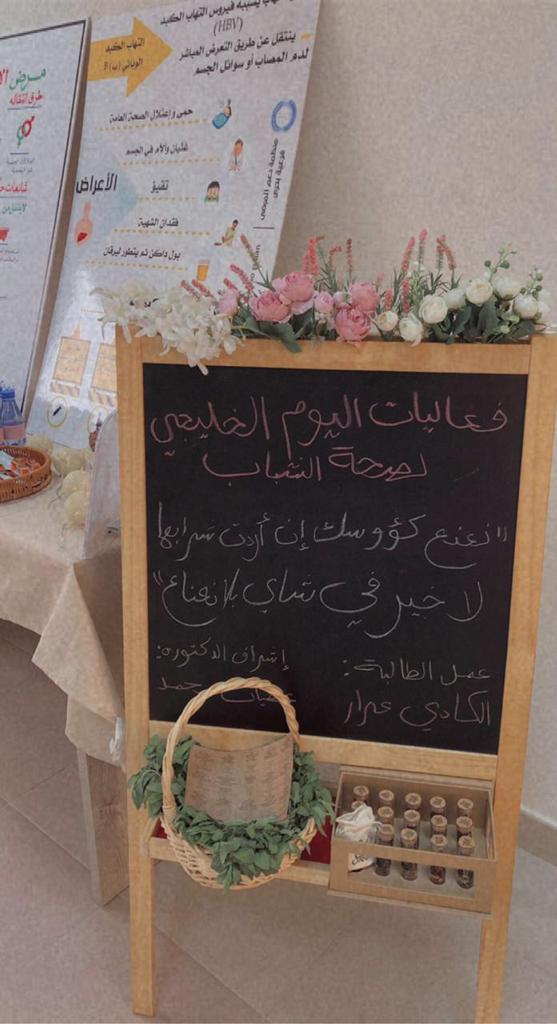 مرض الا
طرق انتقاله
التهاب الكبد
الوبائي (ب) B
التهاب يسببه فيروس التهاب الكبد
(HBV)
ينتقل عن طريق التعرض المباشر
لدم المصاب أو سوائل الجسم
الأعراض
حمى وإعتلال الصحة العامة
غثيان وآلام في الجسم
تقيؤ
فقدان الشهية
بول داكن ثم يتطور ليرقان
فعاليات اليوم الخليجي
لصحة الشباب
"نعنع كؤوسك إن أردت شرابها
لا خير في شاي بلا نعناع"
عمل الطالبة:
الكادي عرار
إشراف الدكتوره:
حمد